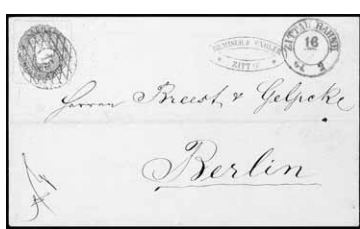 ZITTAU BAHNH
16
ZITTAU
Herren Breest & Gelpcke
Berlin